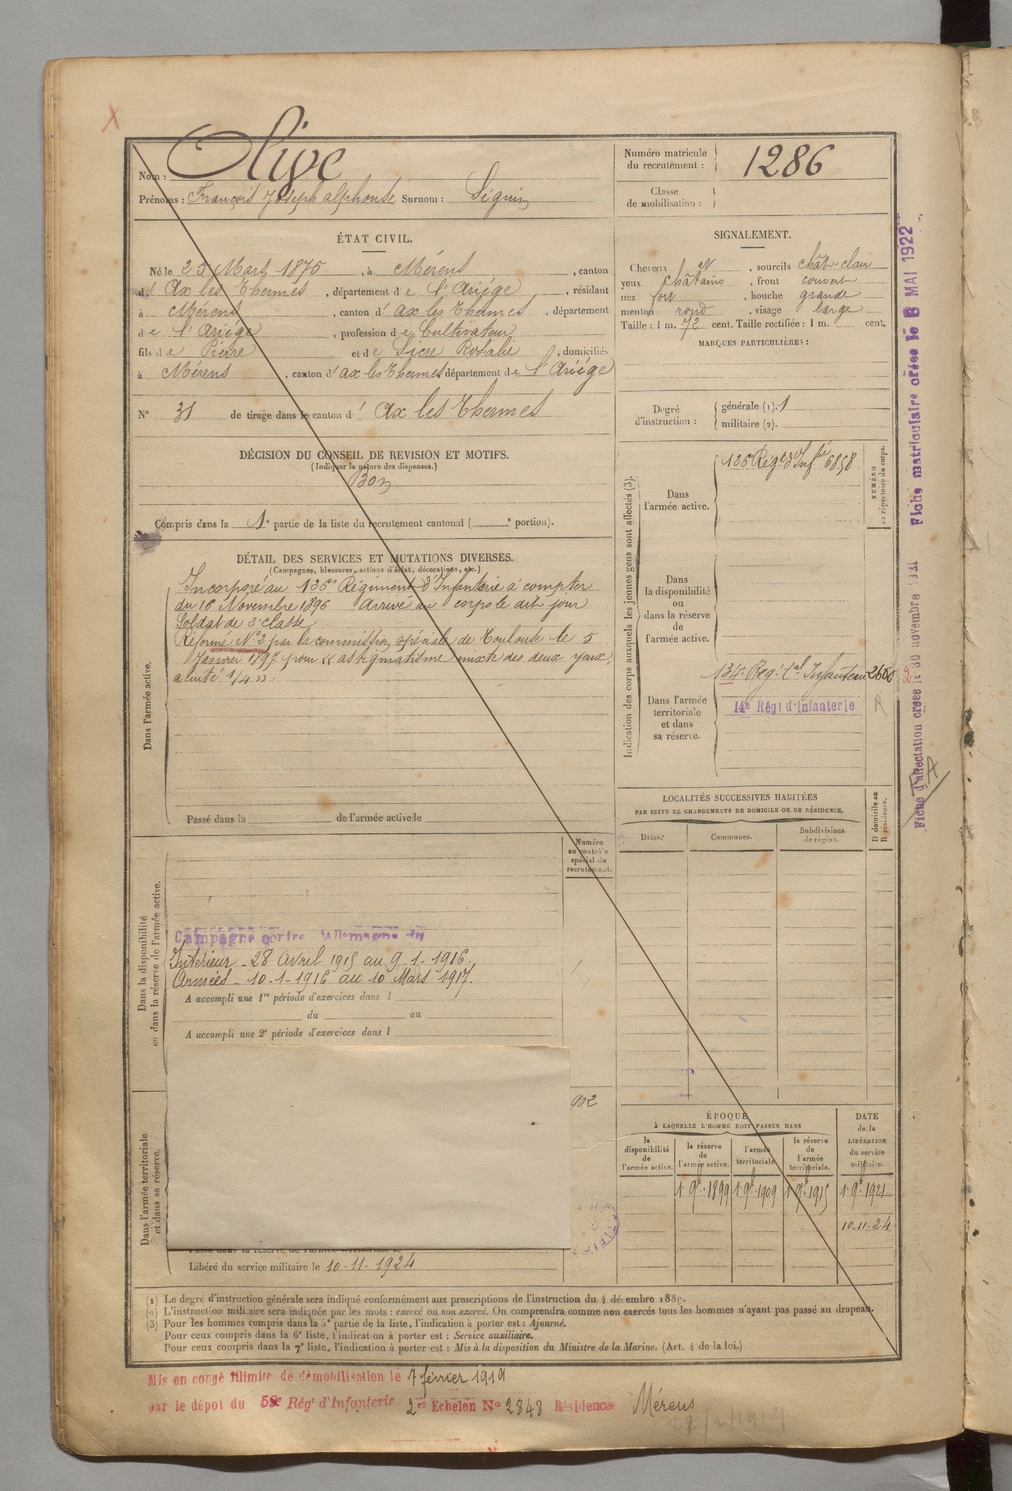 Nom : Olive
Prénoms : François Joseph alphonse Surnom : Séguin
Numéro matricule du recrutement : 1286
Classe de mobilisation :
ÉTAT CIVIL.
Né le 25 Mars 1875, à Mérens, canton
d' Ax les Thermes, département de l'Ariège, résidant
à Mérens, canton d' ax les Thermes, département
de l'Ariège, profession de Cultivateur
fils de Pierre et de Sicre Rosalie, domiciliés
à Mérens, canton d' ax les Thermes département de l'Ariége
N° 31 de tirage dans le canton d' Ax les Thermes
SIGNALEMENT.
Cheveux N, sourcils chât-clair
yeux châtains, front couvert
nez fort, bouche grande
menton rond, visage large
Taille : 1 m. 72 cent. Taille rectifiée : 1 m. cent.
MARQUES PARTICULIÈRES :
Degré d'instruction : générale (1). 1
militaire (2).
DÉCISION DU CONSEIL DE REVISION ET MOTIFS.
(Indiquer la nature des dispenses.)
Bon
Compris dans la 1e partie de la liste du recrutement cantonal ( e portion).
DÉTAIL DES SERVICES ET MUTATIONS DIVERSES.
(Campagnes, blessures, actions d'éclat, décorations, etc.)
Dans l'armée active.
Incorporé au 126e Régiment d'Infanterie à compter
du 16 Novembre 1896 arrivé au corps le dit jour
Soldat de 2e classe
Réformé N° 2 par la commission spéciale de Toulouse le 5
Janvier 1897 pour « astigmatisme mixte des deux yeux,
acuité 1/4 ».
Passé dans la de l'armée active le
Indication des corps auxquels les jeunes gens sont affectés (3).
NUMÉRO au répertoire du corps.
Dans l'armée active.
126 Régt d'Infie 6858
Dans la disponibilité ou dans la réserve de l'armée active.
Dans l'armée territoriale et dans sa réserve.
134e Reg. tal Infanterie
14e Régt d'Infanterie
R
LOCALITÉS SUCCESSIVES HABITÉES
PAR SUITE DE CHANGEMENTS DE DOMICILE OU DE RÉSIDENCE.
Dates.
Communes.
Subdivisions de région.
D domicile ou R résidence.
Numéro au contrôle spécial du recrutement.
Dans la disponibilité ou dans la réserve de l'armée active.
Campagne contre l'allemagne du
Intérieur - 28 Avril 1915 au 9-1-1916.
Armées - 10-1-1916 au 10 Mars 1917.
A accompli une 1re période d'exercices dans l
du au
A accompli une 2e période d'exercices dans l
902
Dans l'armée territoriale et dans sa réserve.
Passé dans la réserve de l'armée territoriale le
Libéré du service militaire le 10-11-1924
ÉPOQUE
À LAQUELLE L'HOMME DOIT PASSER DANS
la disponibilité de l'armée active.
la réserve de l'armée active.
l'armée territoriale.
la réserve de l'armée territoriale.
DATE de la LIBÉRATION du service militaire.
1 9bre 1899 1 9bre 1909 1 9bre 1915 1 9bre 1921
10-11-24
(1) Le degré d'instruction générale sera indiqué conformément aux prescriptions de l'instruction du 4 décembre 1889.
(2) L'instruction militaire sera indiquée par les mots : exercé ou non exercé. On comprendra comme non exercés tous les hommes n'ayant pas passé au drapeau.
(3) Pour les hommes compris dans la 5e partie de la liste, l'indication à porter est : Ajourné.
Pour ceux compris dans la 6e liste, l'indication à porter est : Service auxiliaire.
Pour ceux compris dans la 7e liste, l'indication à porter est : Mis à la disposition du Ministre de la Marine. (Art. 4 de la loi.)
Mis en congé illimité de démobilisation le 7 février 1919
par le dépôt du 59e Régt d'Infanterie 2e Echelon N° 2848 Résidence Mérens
Fiche matriculaire créée le 8 MAI 1922
Fiche d'affectation créée le 30 novembre